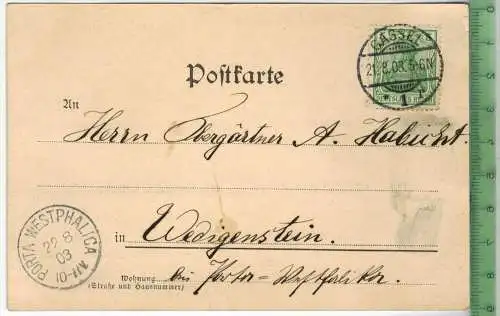 CASSEL
21.8.03.5-6N
* 1 r
Postkarte
An
Herrn Obergärtner A. Habicht.
in Wedigenstein.
Wohnung bei Porta-Westfalika.
(Straße und Hausnummer)
PORTA WESTPHALICA
22 8
03
10-11V